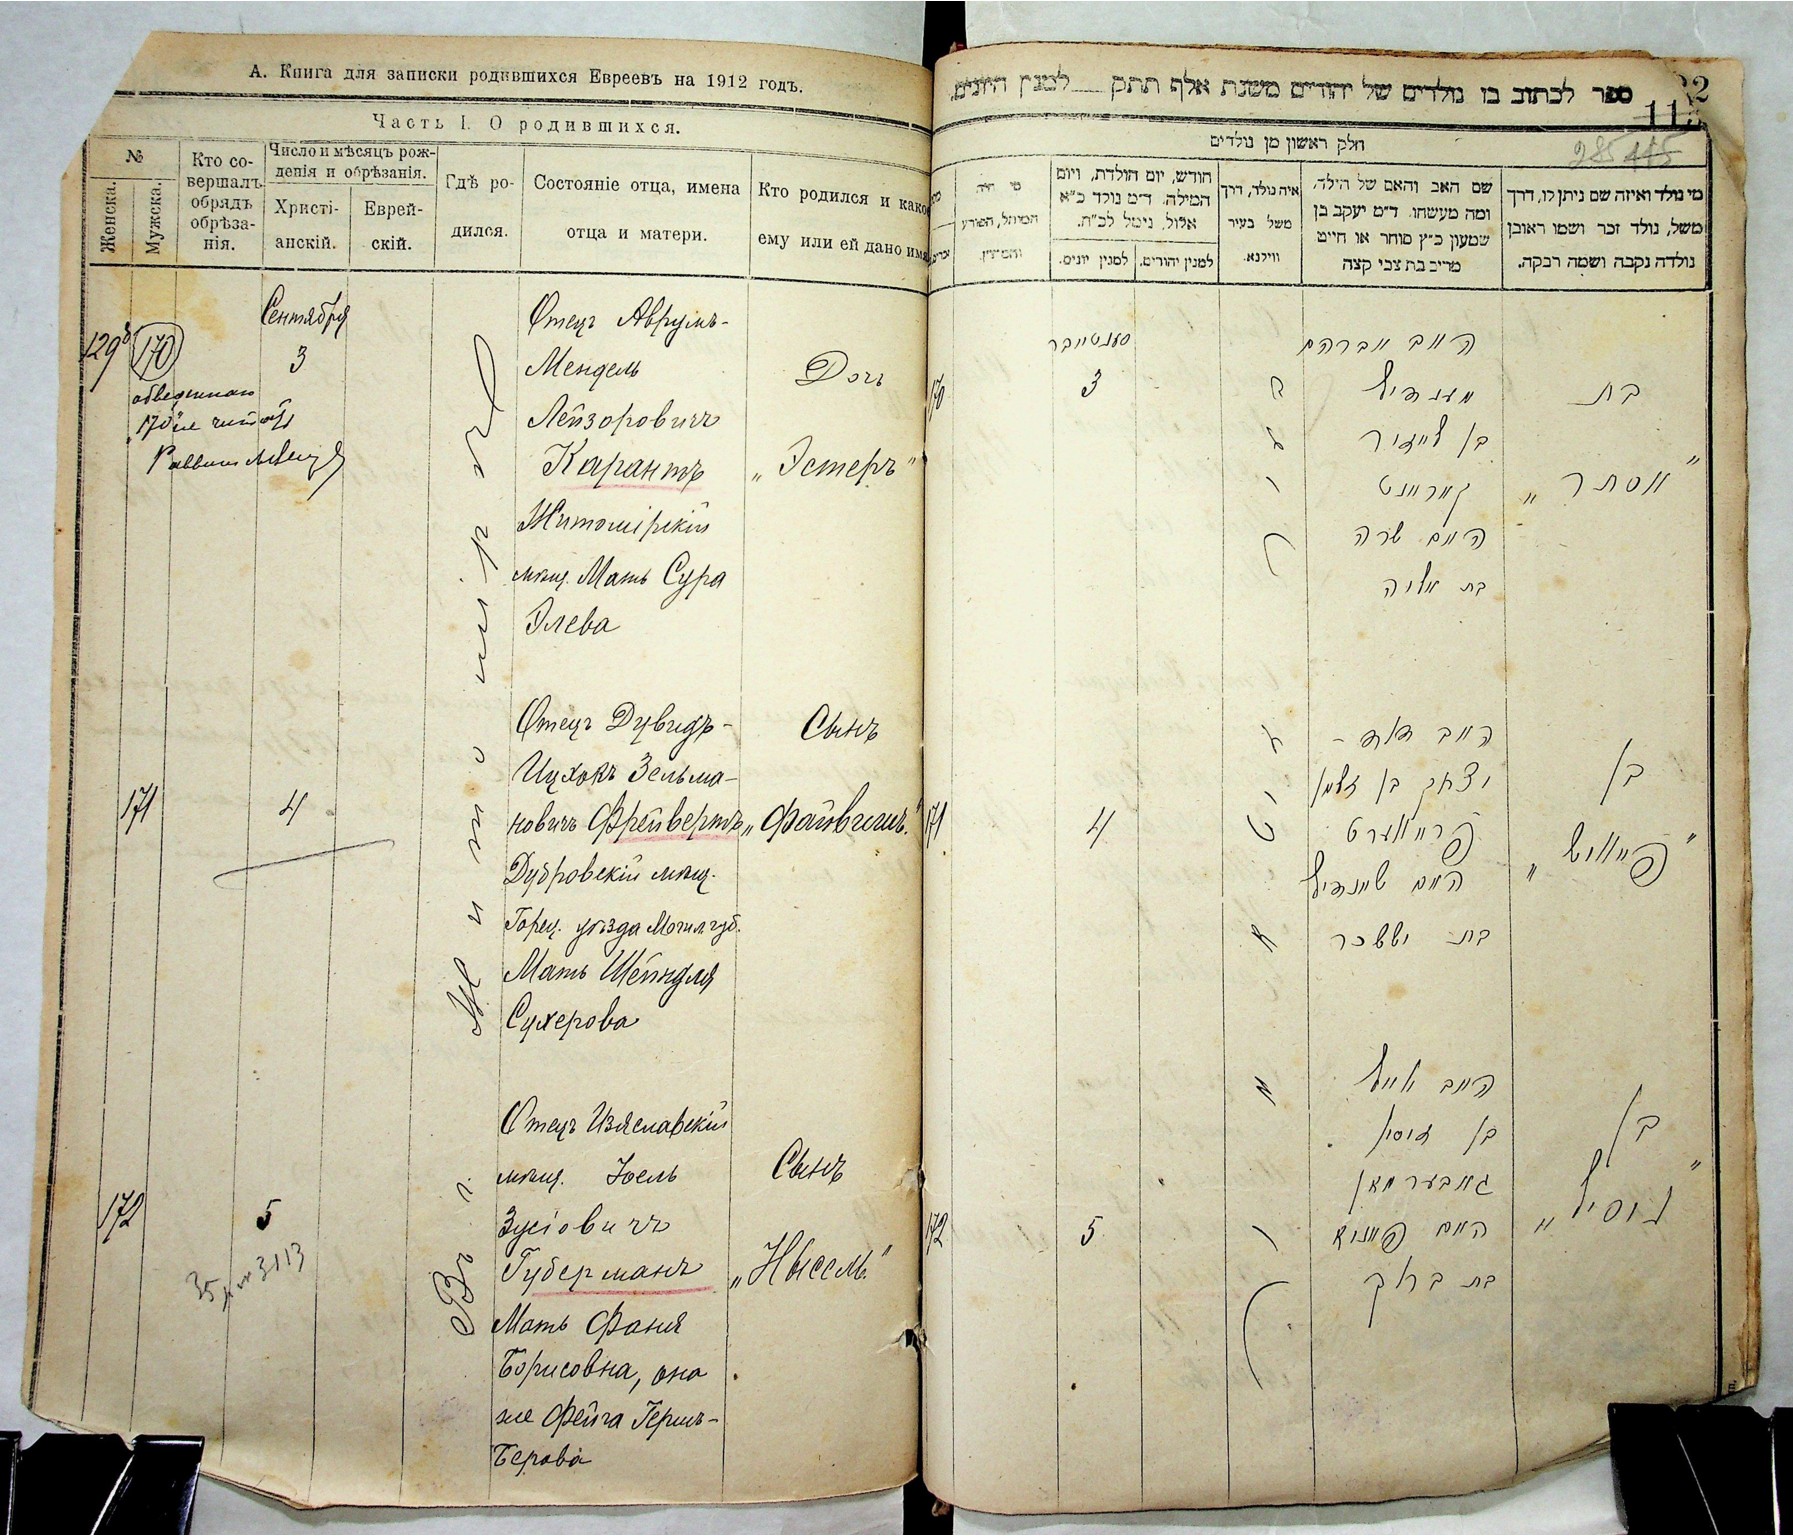 А. Книга для записки родившихся Евреевъ на 1912 годъ.
Часть I. О родившихся.
№
Женска.
Мужска.
Кто со-
вершалъ
обрядъ
обрѣза-
нія.
Число и мѣсяцъ рож-
денія и обрѣзанія.
Христі-
анскій.
Еврей-
скій.
Гдѣ ро-
дился.
Состояніе отца, имена
отца и матери.
Кто родился и како
ему или ей дано имя
129
170
Сентября
3
Отецъ Аврумъ-
Мендель
Лейзоровичъ
Карантъ
Житомірскій
мѣщ. Мать Сура
Элева
Дочь
„Эстеръ"
Въ г. Житомирѣ
171
4
Отецъ Дувидъ-
Ицхокъ Зельма-
новичъ Фрейвертъ
Дубровскій мѣщ.
Горец. уѣзда Могил. губ.
Мать Шейндля
Сухерова
Сынъ
„Файвишъ"
172
5
Отецъ Изяславскій
мѣщ. Іоель
Зусіовичъ
Губерманъ
Мать Фаня
Борисовна, она
же Фейга Гершъ-
Берова
Сынъ
„Нысель"
ספר לכתוב בו נולדים של יהודים משנת אלף תתק למנין היונים.
חלק ראשון מן נולדים
מי נולד ואיזה שם ניתן לו, דרך
משל, נולד זכר ושמו ראובן
נולדה נקבה ושמה רבקה.
שם האב והאם של הילד,
ומה מעשהו. ד״מ יעקב בן
שמעון כ״ץ סוחר או חייט
מרים בת צבי קצה
איה נולד, דרך
משל בעיר
ווילנא.
חודש, יום הולדת, ויום
המילה. ד״מ נולד כ״א
אלול, נימל לכ״ח.
למנין יהודים.
למנין יונים.
מי היה
המוהל, הפורע
והמוצץ.
170
סענטיובר
3
האב אברהם
מענדיל
בן לייזור
קאראנט
האם שרה
בת אליה
בת
„אסתר"
171
4
האב דוד -
יצחק בן זלמן
פרייווערט
האם שיינדיל
בת יששכר
בן
„פייוויש"
172
5
האב יואל
בן זוסיא
גובערמאן
האם פאניא
בת ברוך
בן
„ניסיל"